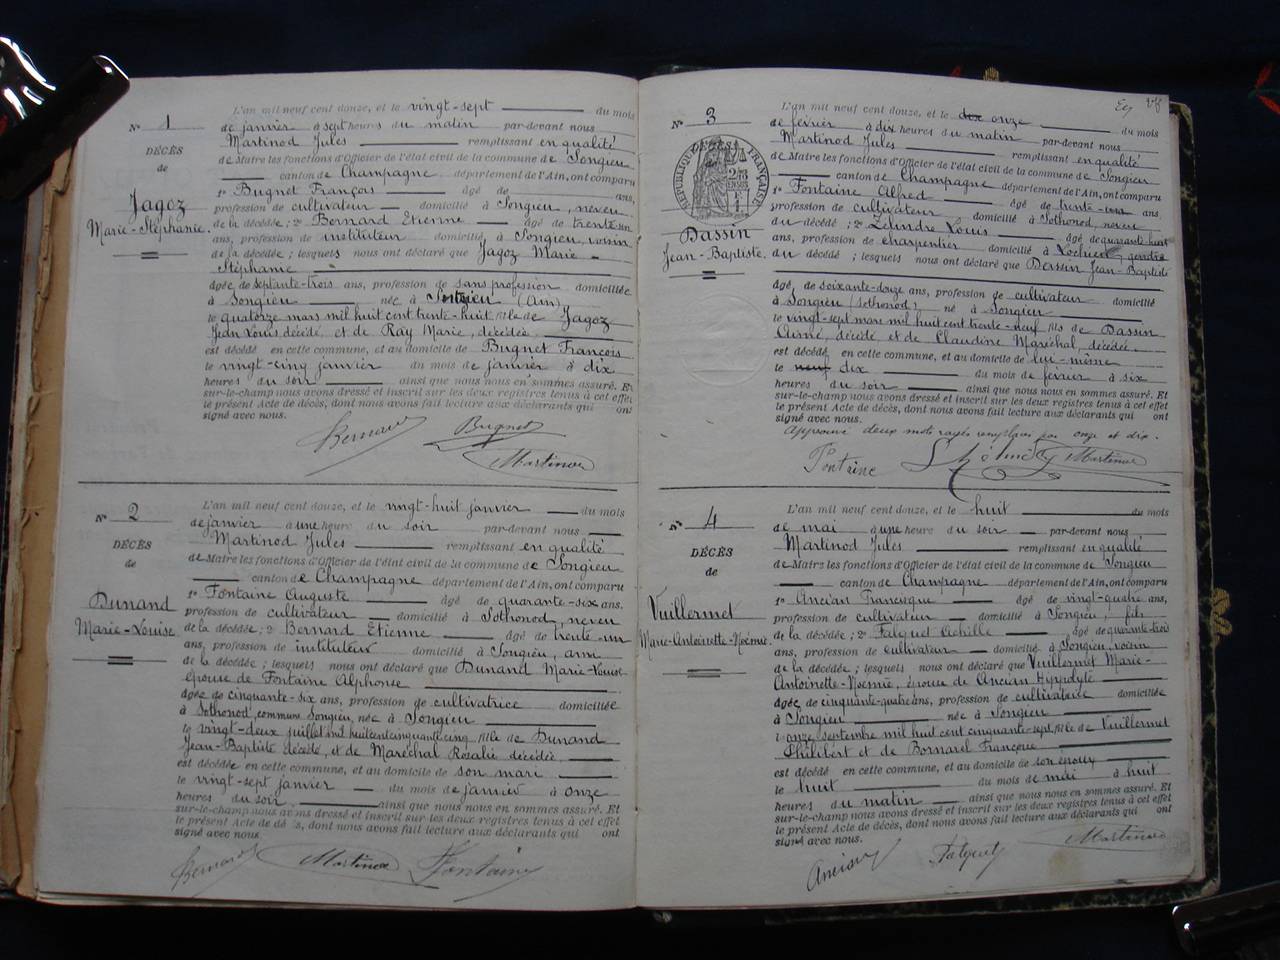 L'an mil neuf cent douze, et le vingt-sept du mois
N° 1
de janvier à sept heures du matin par-devant nous
Martinod Jules remplissant en qualité
DÉCÈS
de Maire les fonctions d'Officier de l'état civil de la commune de Songieu
de
canton de Champagne département de l'Ain, ont comparu
1° Bugnet François âgé de ans,
Jagoz
Marie-Stéphanie.
profession de cultivateur domicilié à Songieu, neveu
de la décédée ; 2° Bernard Etienne âgé de trente-un
ans, profession de instituteur domicilié à Songieu, voisin
de la décédée ; lesquels nous ont déclaré que Jagoz Marie-
Stéphanie
âgée de septante-trois ans, profession de sans profession domiciliée
à Songieu née à Songieu (Ain)
le quatorze mars mil huit cent trente-huit fille de Jagoz
Jean Louis décédé et de Ray Marie, décédée
est décédé en cette commune, et au domicile de Bugnet François
le vingt-cinq janvier du mois de janvier à dix
heures du soir ainsi que nous nous en sommes assuré. Et
sur-le-champ nous avons dressé et inscrit sur les deux registres tenus à cet effet
le présent Acte de décès, dont nous avons fait lecture aux déclarants qui ont
signé avec nous.
Bernard Bugnet
Martinod
L'an mil neuf cent douze, et le vingt-huit janvier du mois
N° 2
de janvier à une heure du soir par-devant nous
Martinod Jules remplissant en qualité
DÉCÈS
de Maire les fonctions d'Officier de l'état civil de la commune de Songieu
de
canton de Champagne département de l'Ain, ont comparu
1° Fontaine Auguste âgé de quarante-six ans,
Dunand
Marie-Louise
profession de cultivateur domicilié à Sothonod, neveu
de la décédée ; 2° Bernard Etienne âgé de trente-un
ans, profession de instituteur domicilié à Songieu, ami
de la décédée ; lesquels nous ont déclaré que Dunand Marie-Louise
épouse de Fontaine Alphonse
âgée de cinquante-six ans, profession de cultivatrice domiciliée
à Sothonod, commune Songieu, née à Songieu
le vingt-deux juillet mil huit cent cinquante cinq fille de Dunand
Jean-Baptiste décédé, et de Maréchal Rosalie décédée,
est décédée en cette commune, et au domicile de son mari
le vingt-sept janvier du mois de janvier à onze
heures du soir ainsi que nous nous en sommes assuré. Et
sur-le-champ nous avons dressé et inscrit sur les deux registres tenus à cet effet
le présent Acte de décès, dont nous avons fait lecture aux déclarants qui ont
signé avec nous.
Bernard Martinod Fontaine
L'an mil neuf cent douze, et le dix onze du mois
N° 3
de février à dix heures du matin par-devant nous
Martinod Jules remplissant en qualité
DÉCÈS
RÉPUBLIQUE FRANÇAISE
de Maire les fonctions d'Officier de l'état civil de la commune de Songieu
canton de Champagne département de l'Ain, ont comparu
1° Fontaine Alfred âgé de trente ans,
profession de cultivateur domicilié à Sothonod, neveu
Dassin
Jean-Baptiste.
du décédé ; 2° Louis âgé de quarante huit
ans, profession de charpentier domicilié à Lochieu, gendre
du décédé ; lesquels nous ont déclaré que Dassin Jean-Baptiste
âgé de soixante-douze ans, profession de cultivateur domicilié
à Songieu (Sothonod) né à Songieu
le vingt-sept mars mil huit cent trente-neuf fils de Dassin
Aimé, décédé, et de Claudine Maréchal, décédée
est décédé en cette commune, et au domicile de lui-même
le neuf dix du mois de février à six
heures du soir ainsi que nous nous en sommes assuré. Et
sur-le-champ nous avons dressé et inscrit sur les deux registres tenus à cet effet
le présent Acte de décès, dont nous avons fait lecture aux déclarants qui ont
signé avec nous.
Approuvé deux mots rayés remplacés par onze et dix.
Fontaine Martinod
L'an mil neuf cent douze, et le huit du mois
N° 4
de mai à une heure du soir par-devant nous
Martinod Jules remplissant en qualité
DÉCÈS
de Maire les fonctions d'Officier de l'état civil de la commune de Songieu
de
canton de Champagne département de l'Ain, ont comparu
1° Ancian Francisque âgé de vingt-quatre ans,
Vuillermet
Marie-Antoinette-Noémie.
profession de cultivateur domicilié à Songieu, fils
de la décédée ; 2° Falquet Achille âgé de quarante-trois
ans, profession de cultivateur domicilié à Songieu, voisin
de la décédée ; lesquels nous ont déclaré que Vuillermet Marie-
Antoinette-Noémie, épouse de Ancian Hyppolyte
âgée de cinquante-quatre ans, profession de cultivatrice domiciliée
à Songieu née à Songieu
onze septembre mil huit cent cinquante-sept fille de Vuillermet
Philibert et de Bornarel Françoise
est décédé en cette commune, et au domicile de son époux
le huit du mois de mai à huit
heures du matin ainsi que nous nous en sommes assuré. Et
sur-le-champ nous avons dressé et inscrit sur les deux registres tenus à cet effet
le présent Acte de décès, dont nous avons fait lecture aux déclarants qui ont
signé avec nous.
Ancian Falquet Martinod